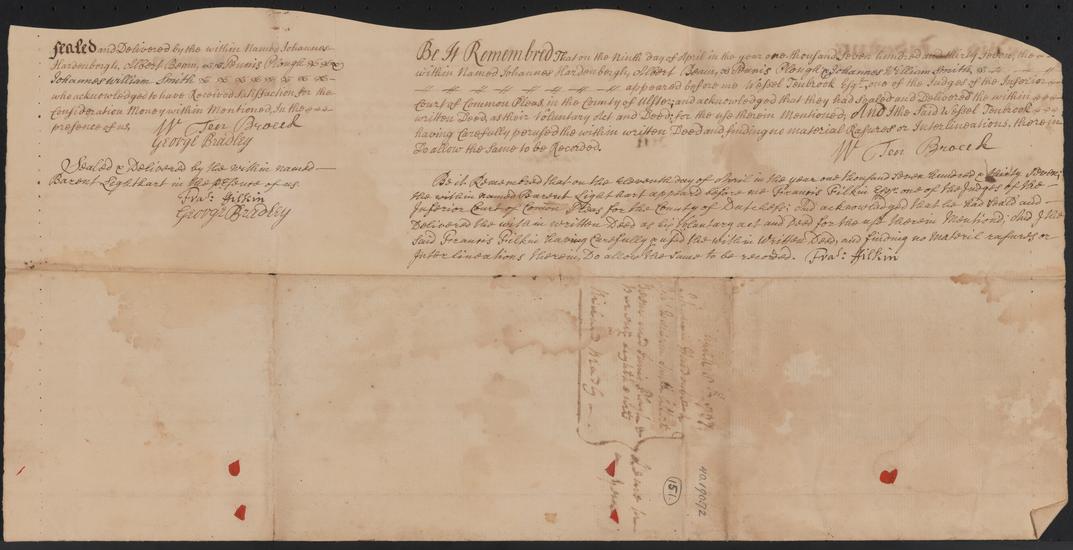 Sealed and Delivered by the within Named Johannes
Hardenbergh, Albert Beam, & Tunis Plough
Johannes William Smith
who acknowledges to have Received Satisfaction for the
Consideration Money within Mentioned In the
presence of us
Wl Ten Broeck
George Bradley
Sealed & Delivered by the within named
Barent Lighthart in the presence of us.
Fra: Filkin
George Bradley
Be It Remembred That on the Ninth day of April in the year one thousand Seven hundred and thirty Seven, the
within Named Johannes Hardenbergh, Albert Beam, & Tunis Plough & Johannes William Smith,
appeared before me Wessel Tenbrook Esqr. one of the Judges of the Inferior
Court of Common Pleas in the County of Ulster, and acknowledged that they had Sealed and Delivered the within
written Deed, as their Voluntary Act and Deed, for the use therein Mentioned, And I the Said Wessel Tenbrook
having Carefully perused the within written Deed and finding no material Rasures or Interlineations, therein
Do allow the Same to be Recorded.
Wl Ten Broeck
Be it Remembred that on the Eleventh day of April in the year one thousand Seven hundred & thirty Seven;
the within named Barent Lighthart appeard before me Francis Filkin Esqr one of the Judges of the
Inferior Court of Comon Pleas for the County of Dutchess; and acknowledged that he had Seald and
Delivered the within written Deed as his Voluntary act and Deed for the use therein Mentiond; And I the
Said Francis Filkin having Carefully perused the within Written Deed, and finding no Materil rasures or
Inter lineations therein, Do allow the Same to be recorded. Fra: Filkin
151